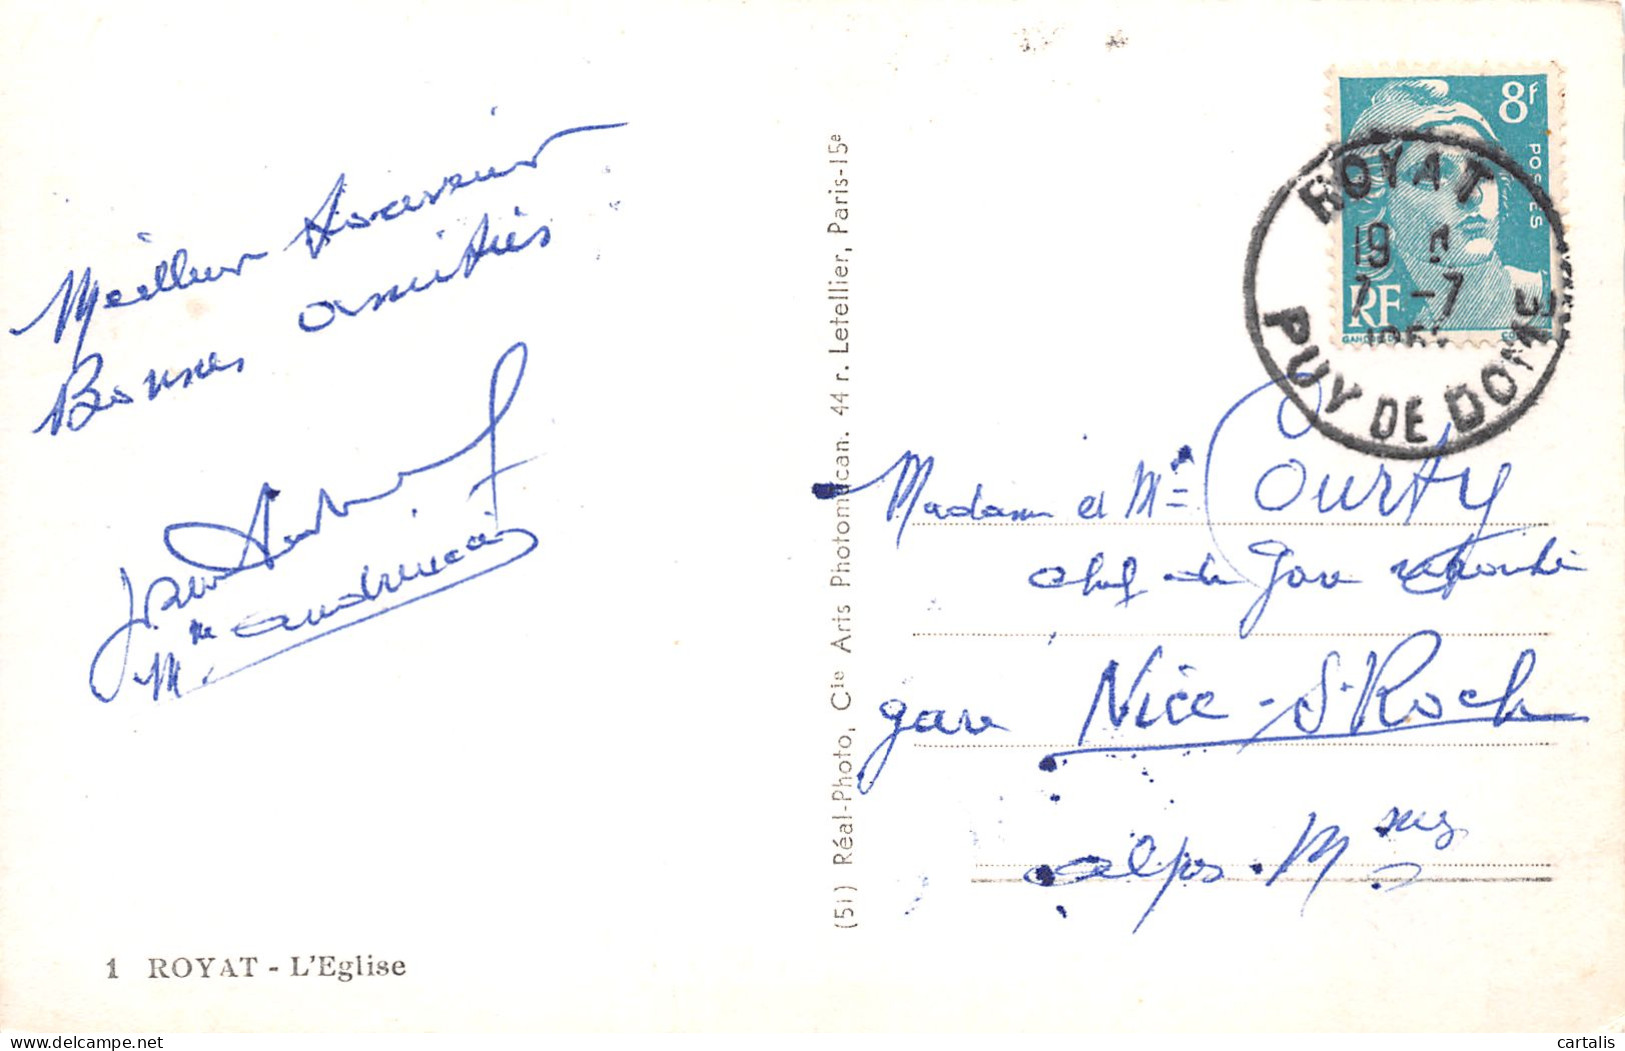 Meilleur Souvenir
Bonnes amitiés
Mme
1 ROYAT - L'Eglise
(51) Réal-Photo, Cie Arts Photomécan. 44 r. Letellier, Paris-15e
8f
POSTES
RF
ROYAT
19
7 -7
PUY DE DOME
Madame et Mr Courty
chef de gare retraité
gare Nice-St Roch
Alpes-Mmes
delcampe.net
cartalis